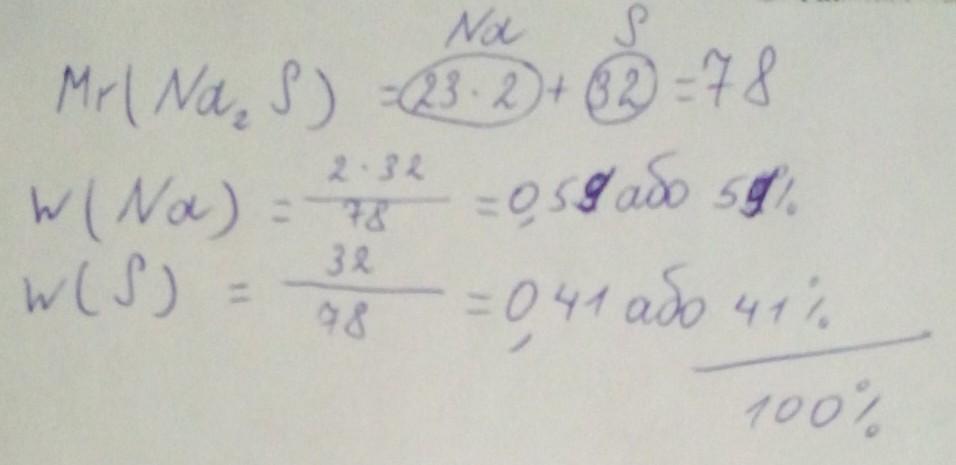 Na S
Mr(Na₂S) = 23·2 + 32 = 78
w(Na) = 2·32/78 = 0,59 або 59%
w(S) = 32/78 = 0,41 або 41%
100%